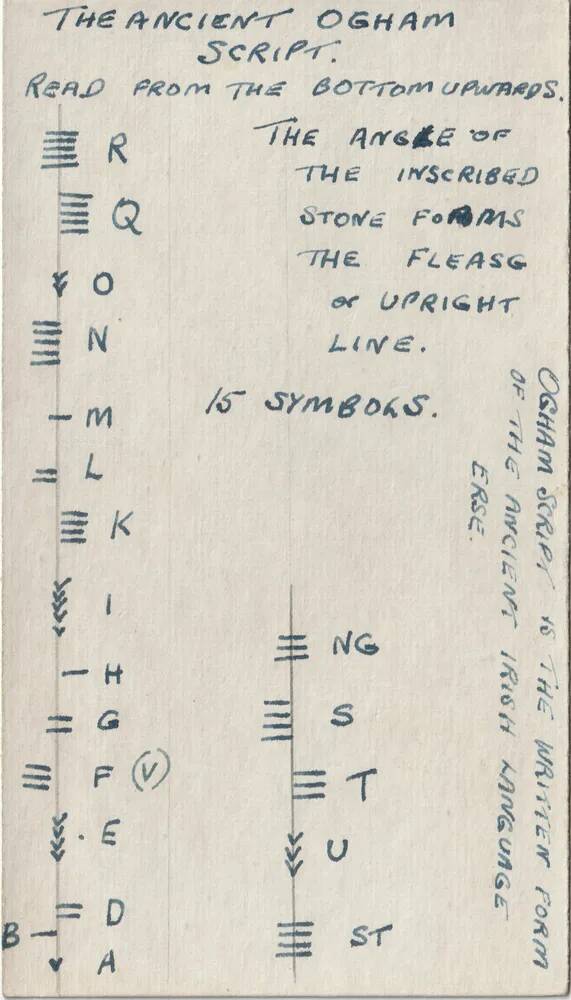 THE ANCIENT OGHAM
SCRIPT.
READ FROM THE BOTTOM UPWARDS.
THE ANGLE OF
THE INSCRIBED
STONE FORMS
THE FLEASG
or UPRIGHT
LINE.
15 SYMBOLS.
R
Q
O
N
M
L
K
I
H
G
F (V)
E
D
B
A
NG
S
T
U
ST
OGHAM SCRIPT IS THE WRITTEN FORM
OF THE ANCIENT IRISH LANGUAGE
ERSE.